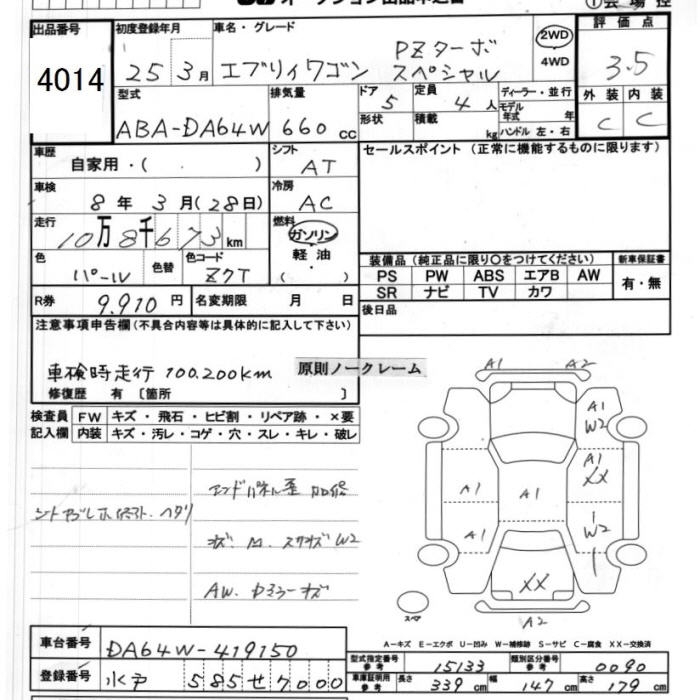 ①会場控
出品番号 初度登録年月 車名・グレード 評価点
4014 25年3月 エブリィワゴン PZターボ スペシャル 2WD 4WD 3.5
型式 排気量 ドア 定員 ディーラー・並行 外装 内装
ABA-DA64W 660cc 5 4人 モデル年式 年 C C
形状 積載 kg ハンドル 左・右
車歴 シフト セールスポイント (正常に機能するものに限ります)
自家用・( ) AT
車検 冷房
8年3月(28日) AC
走行 燃料
10万8千673km ガソリン
軽油
( )
色 色替 色コード 装備品(純正品に限り○をつけてください) 新車保証書
パール ZQT PS PW ABS エアB AW 有・無
SR ナビ TV カワ
R券 9.910円 名変期限 月 日 後日品
注意事項申告欄(不具合内容等は具体的に記入して下さい)
車検時走行 100,200km 原則ノークレーム
修復歴 有 〔箇所 〕
検査員記入欄 FW キズ・飛石・ヒビ割・リペア跡・×要
内装 キズ・汚レ・コゲ・穴・スレ・キレ・破レ
A1 A2
A1
W2
A1
XX
A1 A1
W2
A1
XX
A2
スペア
AW.
A-キズ E-エクボ U-凹み W-補修跡 S-サビ C-腐食 XX-交換済
車台番号 DA64W-419150 型式指定番号 参考 15133 類別区分番号 参考 0090
登録番号 水戸 585せ7000 車庫証明用 参考 長さ 339cm 幅 147cm 高さ 179cm